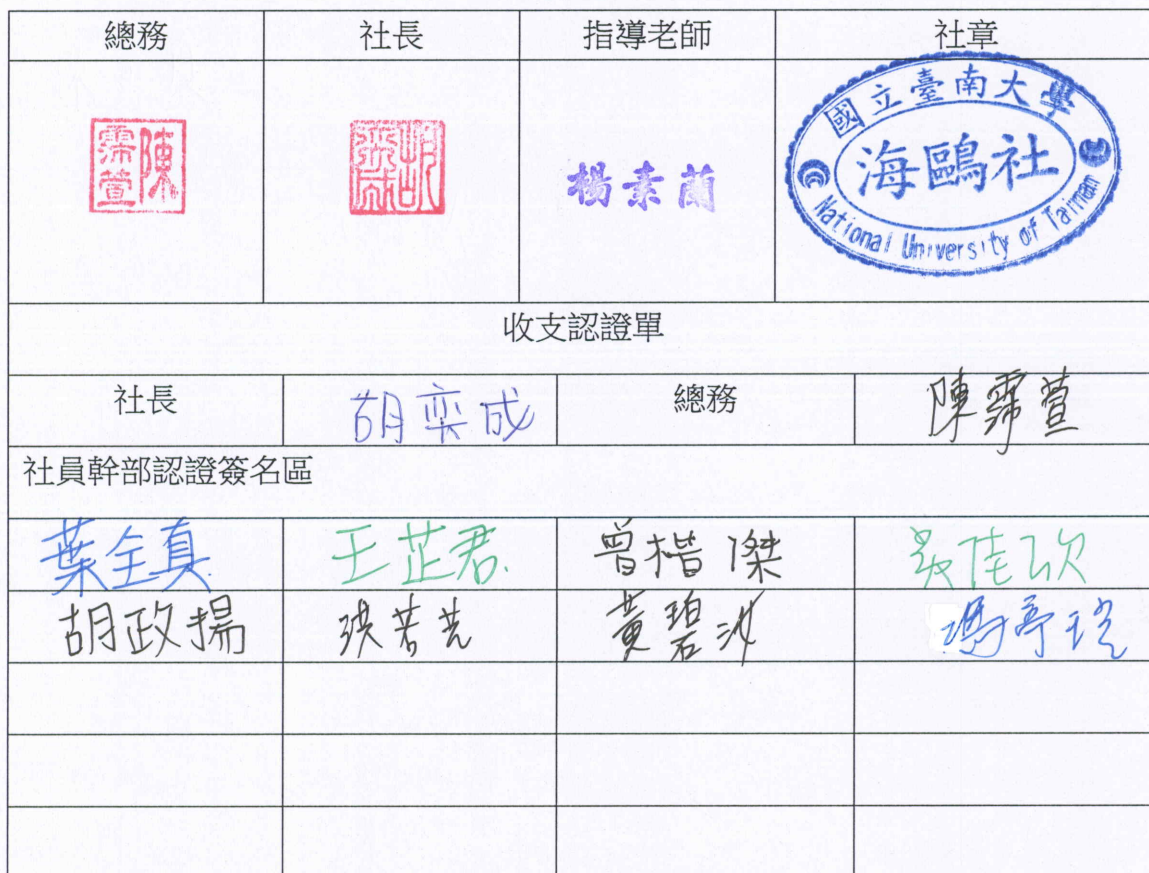 總務 社長 指導老師 社章
陳霈萱 胡奕成 楊素蘭 國立臺南大學
海鷗社
National University of Tainan
收支認證單
社長 胡奕成 總務 陳霈萱
社員幹部認證簽名區
葉全真 王芷君 曾楷傑 吳佳欣
胡政揚 洪若芸 黃碧汝 馮亭瑄